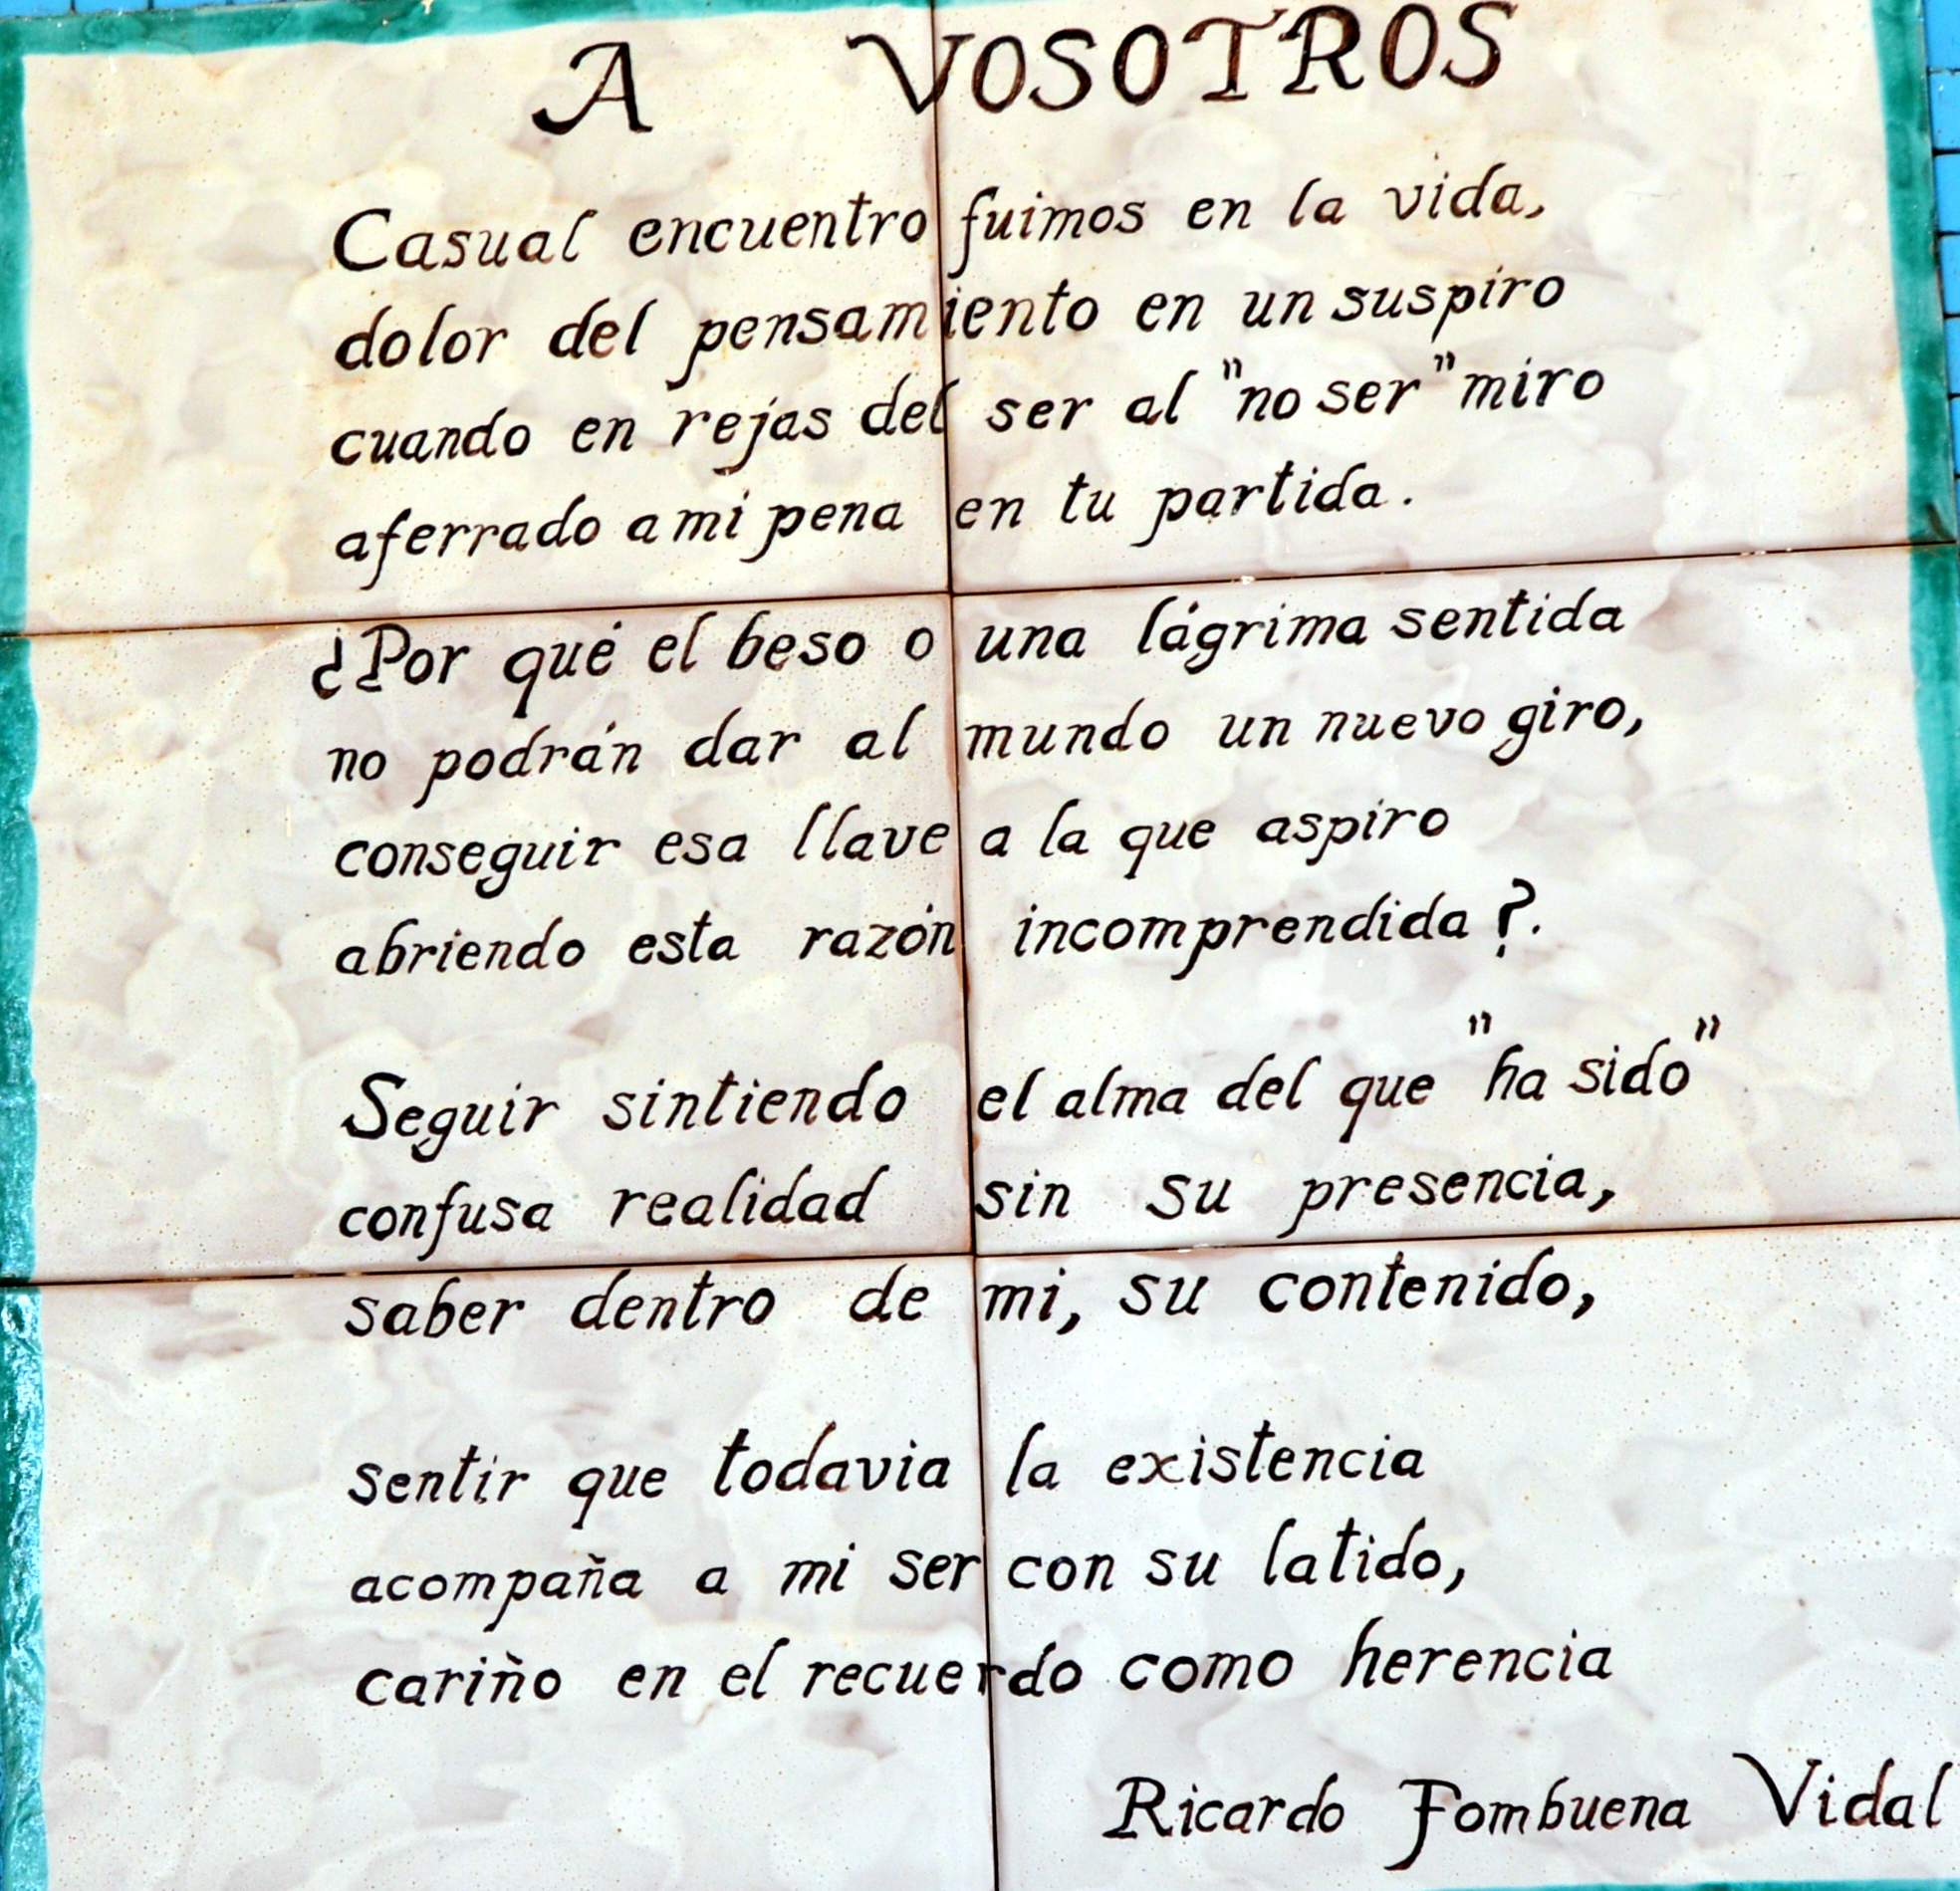 A VOSOTROS
Casual encuentro fuimos en la vida,
dolor del pensamiento en un suspiro
cuando en rejas del ser al "no ser" miro
aferrado a mi pena en tu partida.
¿Por qué el beso o una lágrima sentida
no podrán dar al mundo un nuevo giro,
conseguir esa llave a la que aspiro
abriendo esta razón incomprendida?.
Seguir sintiendo el alma del que "ha sido"
confusa realidad sin su presencia,
saber dentro de mi, su contenido,
sentir que todavia la existencia
acompaña a mi ser con su latido,
cariño en el recuerdo como herencia
Ricardo Fombuena Vidal